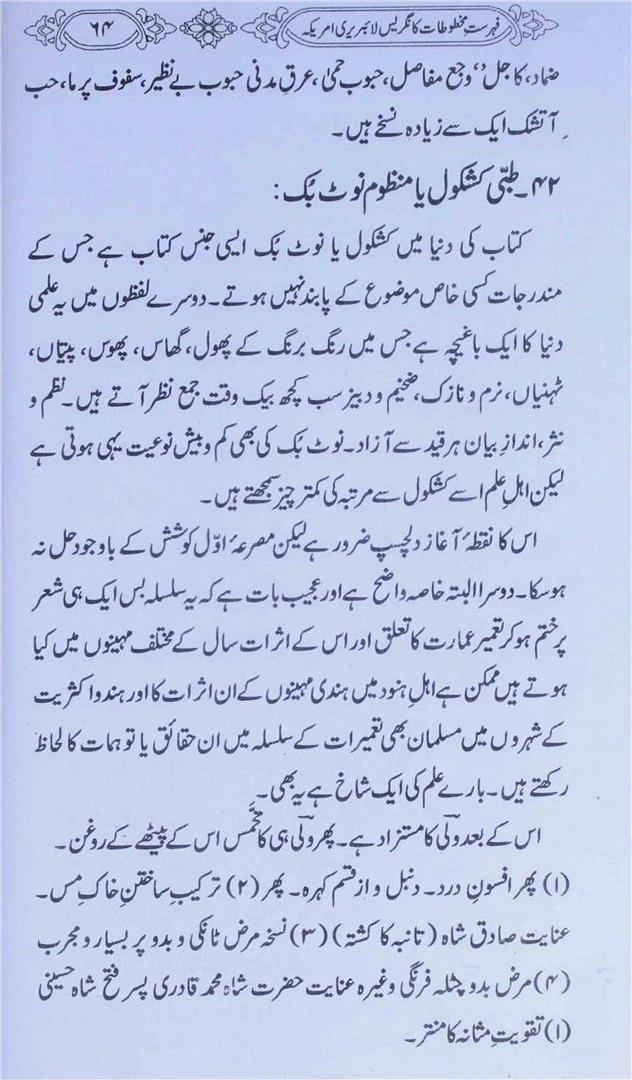 فہرستِ مخطوطات کانگریس لائبریری امریکہ
۶۴
ضماد، کاجل ”وجع مفاصل، حبوب حمیٰ، عرقِ مدنی حبوب بے نظیر، سفوف پرما، حب
آتشک ایک سے زیادہ نسخے ہیں۔
۴۲۔ طبّی کشکول یا منظوم نوٹ بُک :
کتاب کی دنیا میں کشکول یا نوٹ بُک ایسی جنس کتاب ہے جس کے
مندرجات کسی خاص موضوع کے پابند نہیں ہوتے۔ دوسرے لفظوں میں یہ علمی
دنیا کا ایک باغیچہ ہے جس میں رنگ برنگ کے پھول، گھاس، پھوس، پیتاں،
ٹہنیاں، نرم و نازک، ضخیم و دبیز سب کچھ بیک وقت جمع نظر آتے ہیں۔ نظم و
نثر، اندازِ بیان ہر قید سے آزاد۔ نوٹ بُک کی بھی کم و بیش نوعیت یہی ہوتی ہے
لیکن اہلِ علم اسے کشکول سے مرتبہ کی کمتر چیز سمجھتے ہیں۔
اس کا نقطۂ آغاز دلچسپ ضرور ہے لیکن مصرعۂ اوّل کوشش کے باوجود حل نہ
ہوسکا۔ دوسرا البتہ خاصہ واضح ہے اور عجیب بات ہے کہ یہ سلسلہ بس ایک ہی شعر
پر ختم ہوکر تعمیر عمارت کا تعلق اور اس کے اثرات سال کے مختلف مہینوں میں کیا
ہوتے ہیں ممکن ہے اہلِ ہنود میں ہندی مہینوں کے ان اثرات کا اور ہندو اکثریت
کے شہروں میں مسلمان بھی تعمیرات کے سلسلہ میں ان حقائق یا توہمات کا لحاظ
رکھتے ہیں۔ بارے علم کی ایک شاخ ہے یہ بھی۔
اس کے بعد ولیؔ کا مستزاد ہے۔ پھر ولیؔ ہی کا مخمّس اس کے پیٹھے کے روغن۔
(۱) پھر افسونِ درد۔ دنبل و از قسم کہرہ۔ پھر (۲) ترکیبِ ساختنِ خاکِ مس۔
عنایت صادق شاہ (تانبہ کا کشتہ) (۳) نسخہ مرض ٹانکی و بدو پر بسیار و مجرب
(۴) مرض بدو چٹلہ فرنگی وغیرہ عنایت حضرت شاہ محمد قادری پسر فتح شاہ حسینی
(۱) تقویتِ مثانہ کا منتر۔